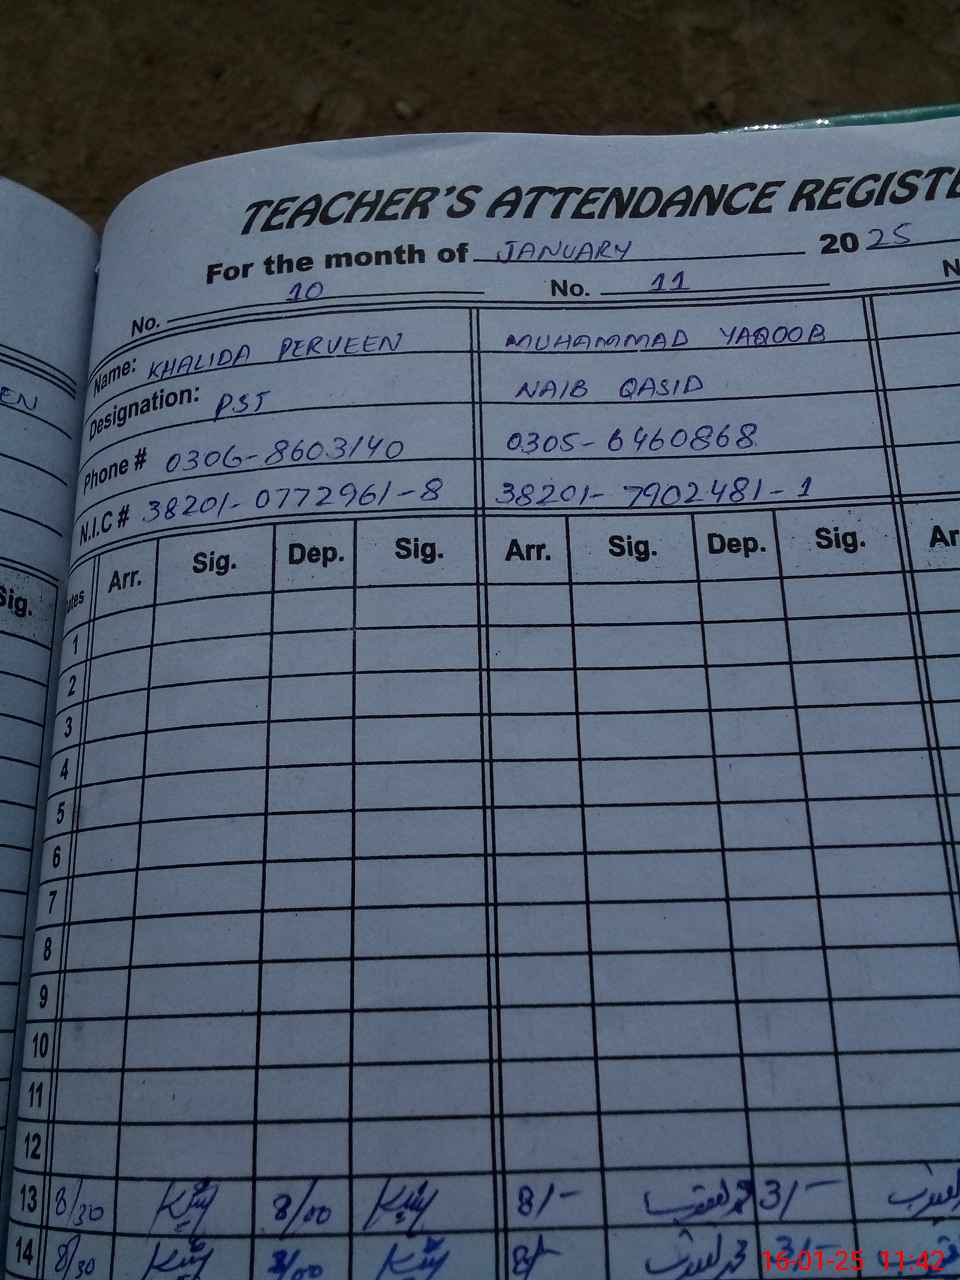 TEACHER'S ATTENDANCE REGISTE
For the month of JANUARY 2025
No. 10 No. 11 N
Name: KHALIDA PERVEEN MUHAMMAD YAQOOB
EN
Designation: PST NAIB QASID
Phone # 0306-8603140 0305-6460868
N.I.C # 38201-0772961-8 38201-7902481-1
Sig. Arr. Sig. Dep. Sig. Arr. Sig. Dep. Sig. Ar
1
2
3
4
5
6
7
8
9
10
11
12
13 8/30 8/00 8/- 3/-
14 8/30 3/-
16-01-25 11:42